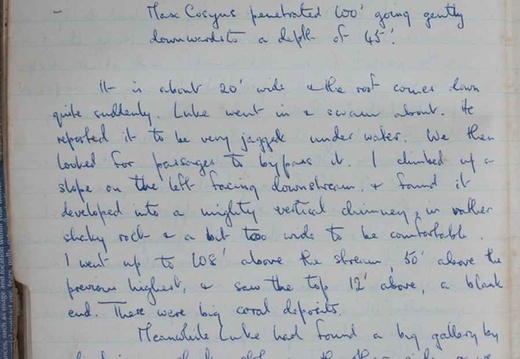 - Max Cosyns penetrated 600' going gently
downwards to a depth of 45'.
It is about 20' wide & the roof comes down
quite suddenly. Luke went in & swam about. He
reported it to be very jagged under water. We then
looked for passages to bypass it. I climbed up a
slope on the left facing downstream, & found it
developed into a mighty vertical chimney, in rather
shaky rock & a bit too wide to be comfortable.
I went up to 108' above the stream, 50' above the
previous highest, & saw the top 12' above, a blank
end. There were big coral deposits.
Meanwhile Luke had found a big gallery by